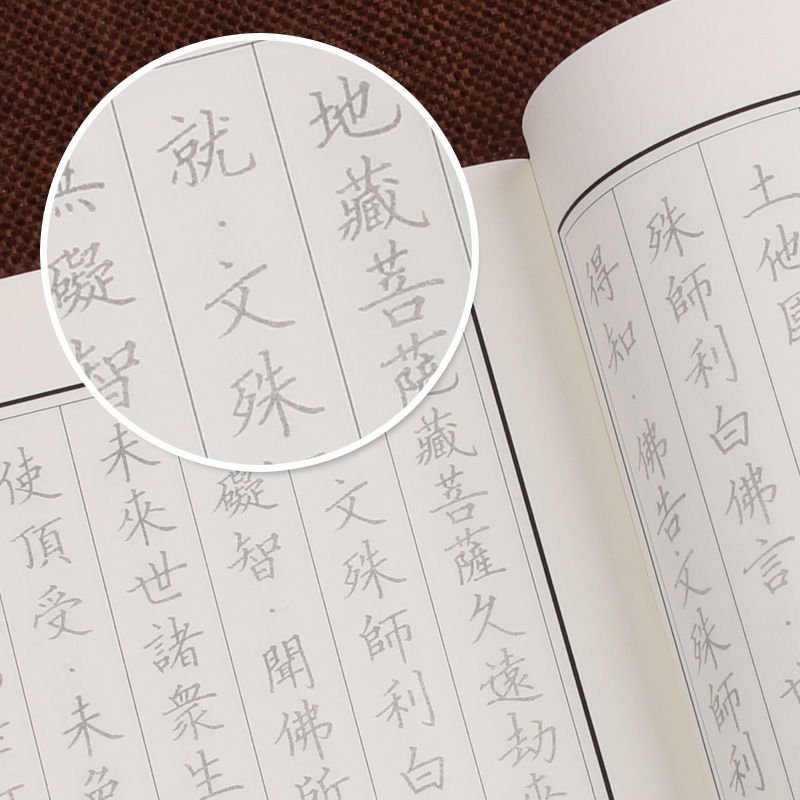 地藏菩薩
就·文殊
無礙智
土他國
殊師利白佛言·
得知·佛告文殊師利
藏菩薩久遠劫來
文殊師利白
礙智·聞佛所
未來世諸衆生
使頂受·未